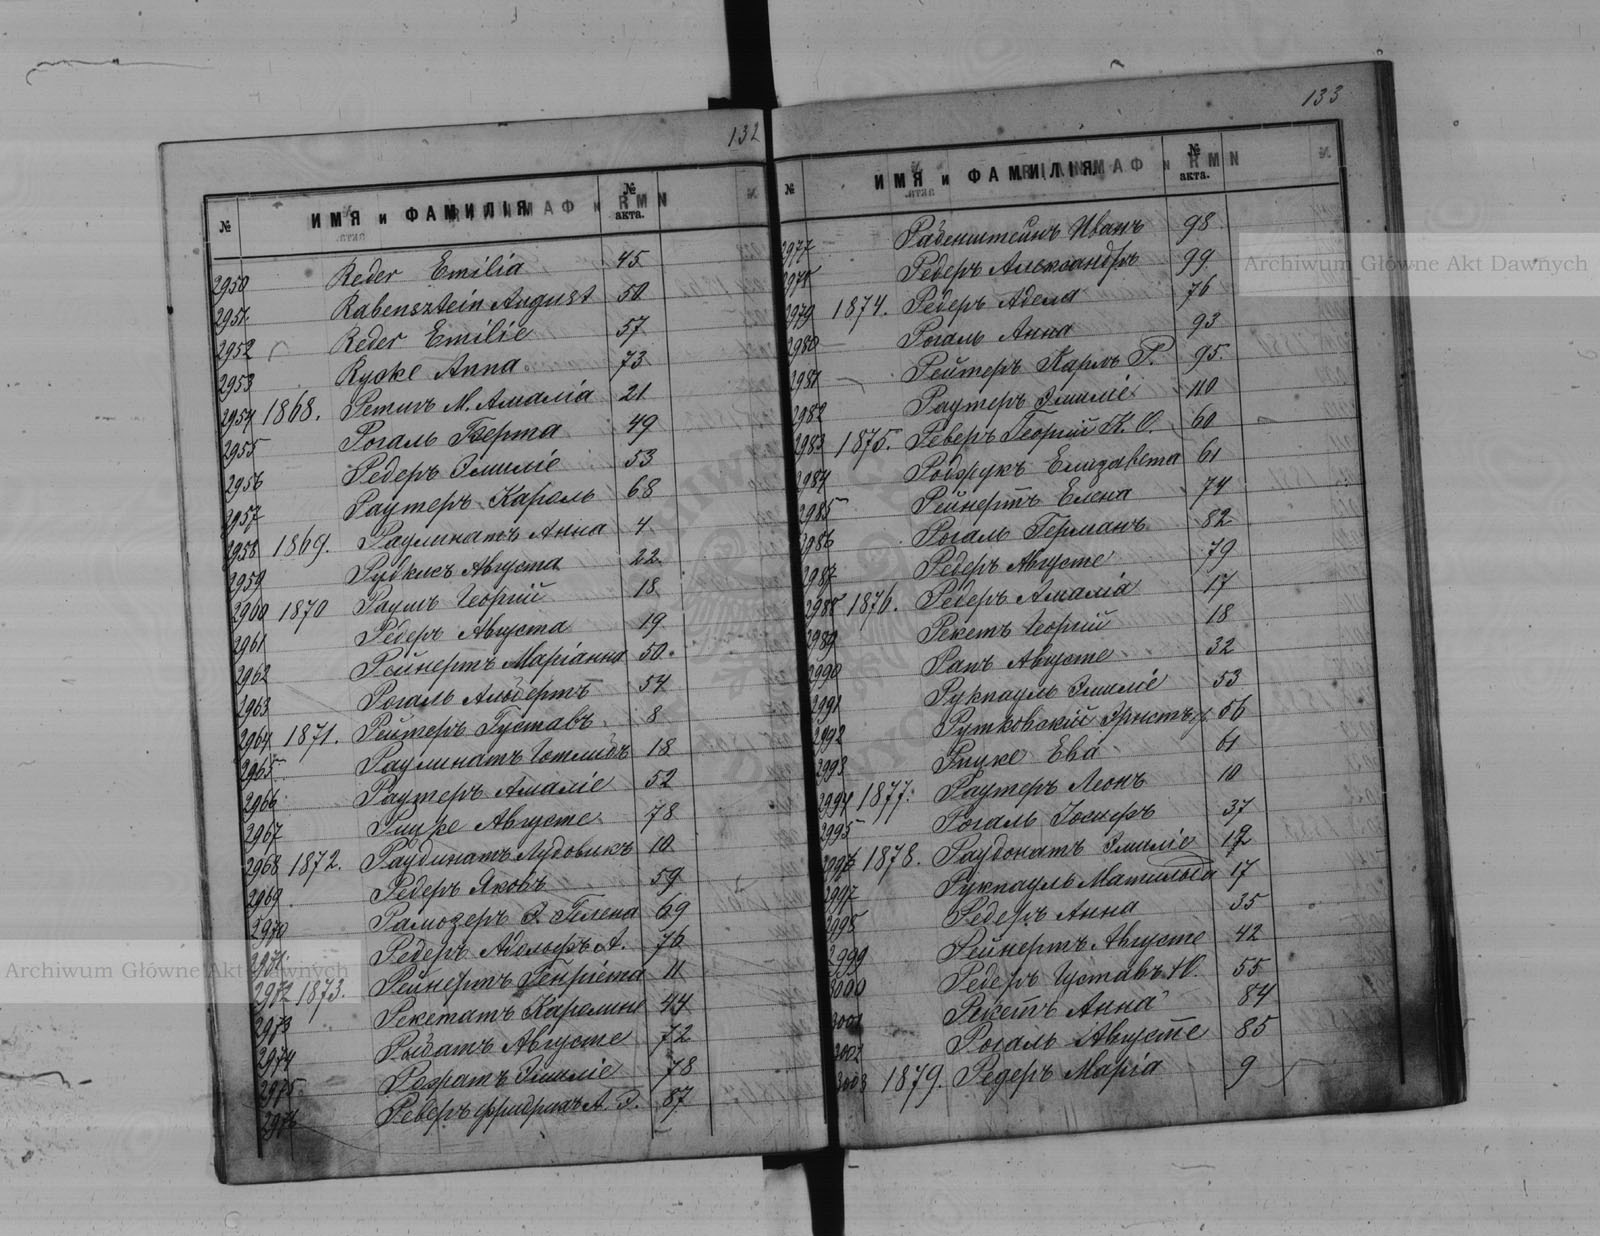 132
№ ИМЯ и ФАМИЛІЯ № акта.
2950 Reder Emilia 45
2951 Rabensztein August 50
2952 Reder Emilie 57
2953 Ryoke Anna 73
2954 1868. М. Амалія 21
2955 Рогаль Берта 49
2956 Редеръ Эмиліе 53
2957 Раутеръ Кароль 68
2958 1869. Раулинатъ Анна 4
2959 Августа 22
2960 1870 Георгій 18
2961 Редеръ Августа 19
2962 Рейнертъ Маріанна 50
2963 Рогаль Альбертъ 54
2964 1871. Рейтеръ Густавъ 8
2965 Раулинатъ Готлибъ 18
2966 Раутеръ Амаліе 52
2967 Августе 78
2968 1872. Раудинатъ Лудовикъ 10
2969 Редеръ Яковъ 59
2970 Гелена 69
2971 Редеръ Адольфъ А. 76
2972 1873. Рейнертъ Генріета 11
2973 Рекетатъ Каролине 44
2974 Августе 72
2975 Эмиліе 78
2976 Реверъ Фридрихъ А. 87
133
№ ИМЯ и ФАМИЛІЯ № акта.
2977 Рабенштейнъ Иванъ 98
2978 Редеръ Александръ 99
2979 1874. Редеръ Адела 76
2980 Рогаль Анна 93
2981 Рейтеръ Карлъ Г. 95
2982 Раутеръ Эмиліе 110
2983 1875. Реверъ Георгій К. О. 60
2984 Елизавета 61
2985 Рейнертъ Елена 74
2986 Рогаль Германъ 82
2987 Редеръ Августе 79
2988 1876. Редеръ Амалія 17
2989 Рекетъ Георгій 18
2990 Рапъ Августе 32
2991 Рукпауль Эмиліе 53
2992 Рутковскій Эрнстъ 56
2993 Ева 61
2994 1877. Раутеръ Леонъ 10
2995 Рогаль Іосифъ 37
2996 1878. Раудонатъ Эмиліе 12
2997 Рукпауль Матильда 17
2998 Редеръ Анна 35
2999 Рейнертъ Августе 42
3000 Редеръ Густавъ Ю. 55
3001 Рекетъ Анна 84
3002 Рогаль Августе 85
3003 1879. Редеръ Марія 9
Archiwum Główne Akt Dawnych
Archiwum Główne Akt Dawnych